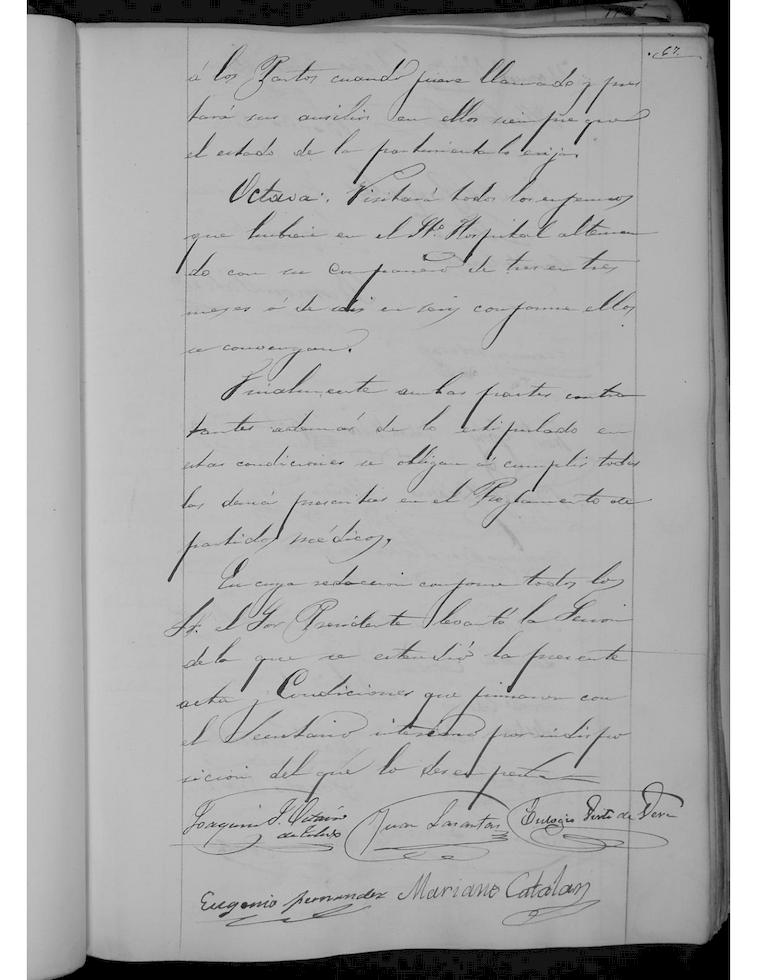 67.
á los Partos cuando fuere llamado y pres
tará sus ausilios en ellos siempre que
el estado de la parturienta lo exija.
Octava. Visitará todos los enfermos
que hubiere en el Sto. Hospital alternan
do con su compañero de tres en tres
meses ó de seis en seis conforme ellos
se convengan.
Finalmente ambas partes contra
tantes ademas de lo estipulado en
estas condiciones se obligan á cumplir todas
las demás prescritas en el Reglamento de
partidos médicos.
En cuya redaccion conforme todos los
S.S. el Sor Presidente levantó la Sesion
de la que se estendió la presente
acta y Condiciones que firmaron con
el Secretario interino por indispo
sicion del que lo desempeña
Joaquin Juan Lasantas Eulogio de Vera
Eugenio Fernandez Mariano Catalan